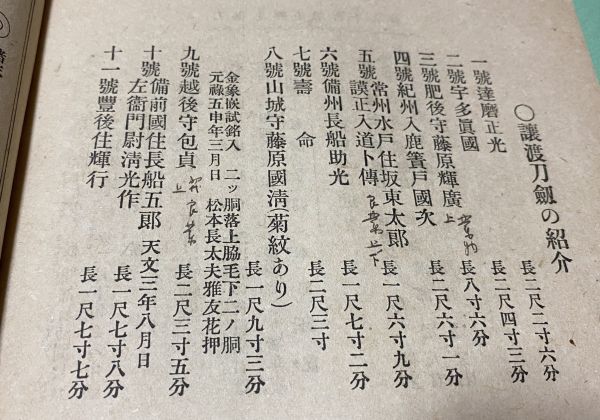 ○讓渡刀劍の紹介
一號達磨正光 長二尺二寸六分
二號宇多眞國 長二尺四寸三分
三號肥後守藤原輝廣 上 業物 長八寸六分
四號紀州入鹿簀戸國次 長二尺六寸一分
五號常州水戸住坂東太郎 長一尺六寸九分
謨正入道卜傳 良業上下
六號備州長船助光 長一尺七寸二分
七號壽命 長二尺三寸
八號山城守藤原國清(菊紋あり) 長一尺九寸三分
金象嵌試銘入 二ッ胴落上脇毛下二ノ胴
元祿五申年三月日 松本長太夫雅友花押
九號越後守包貞 上 良業 長二尺三寸五分
十號備前國住長船五郎 天文三年八月日
左衞門尉淸光作 長一尺七寸八分
十一號豐後住輝行 長一尺七寸七分